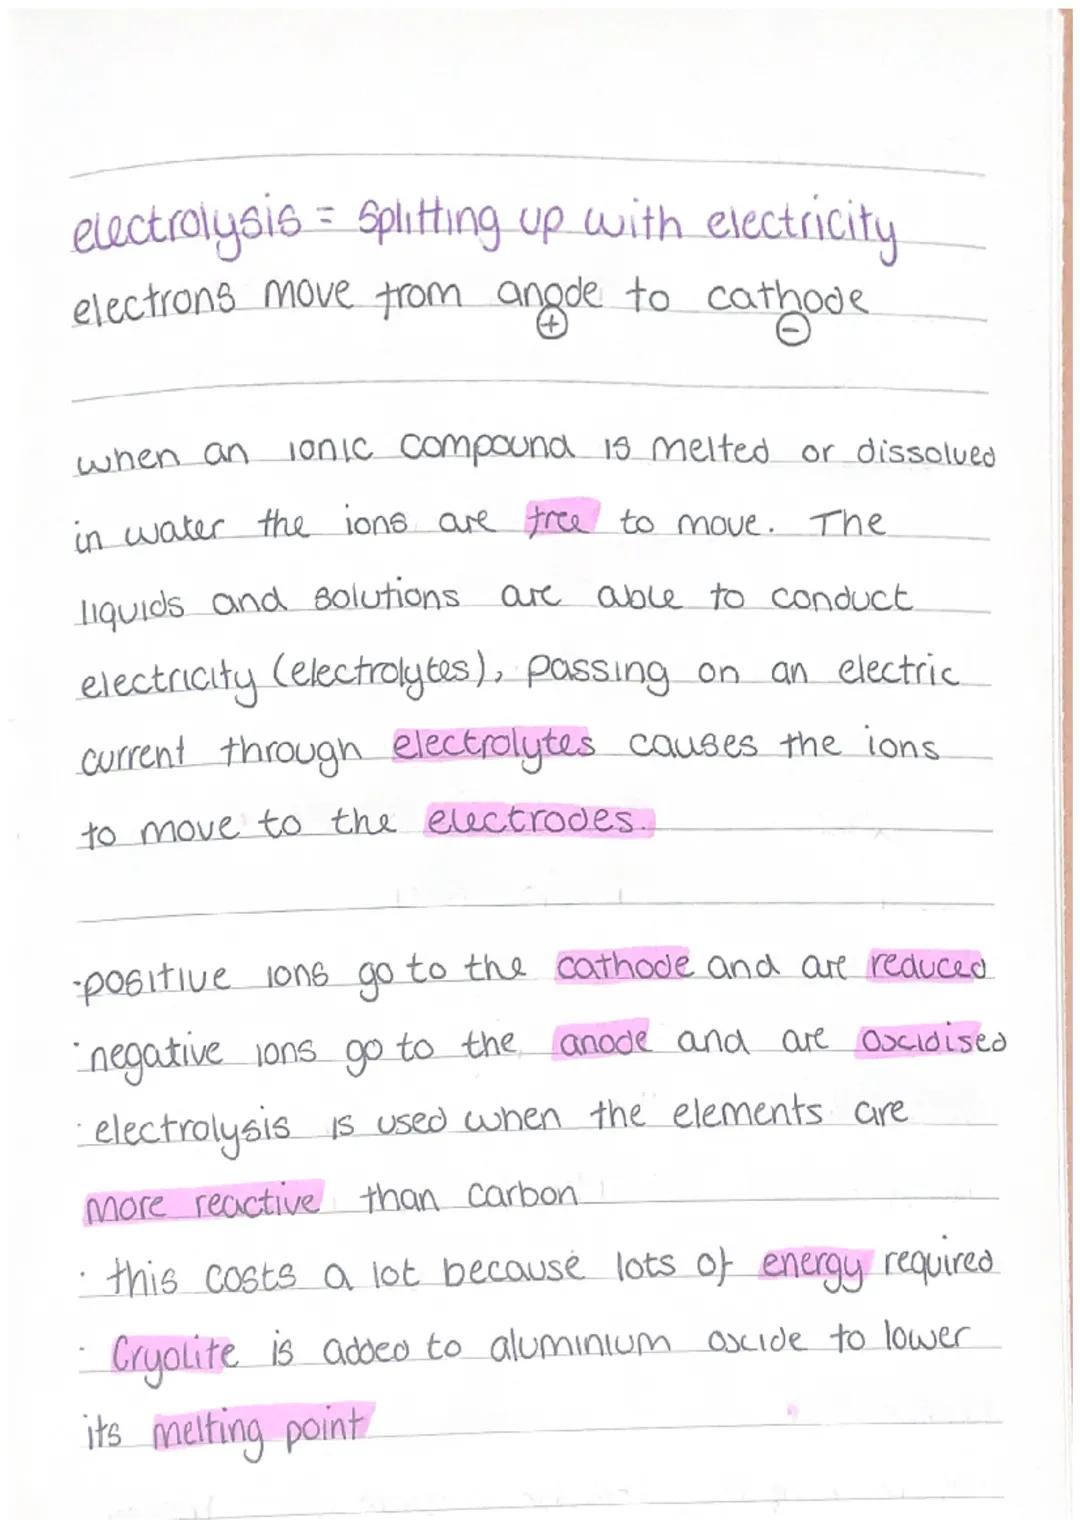 electrolysis = splitting up with electricity
electrons move from anode to cathode
+ -
when an ionic compound is melted or dissolved
in water the ions are free to move. The
liquids and solutions are able to conduct
electricity (electrolytes), passing on an electric
current through electrolytes causes the ions
to move to the electrodes.
·positive ions go to the cathode and are reduced
·negative ions go to the anode and are oxidised
·electrolysis is used when the elements are
more reactive than carbon
·this costs a lot because lots of energy required
·Cryolite is added to aluminium oxide to lower
its melting point